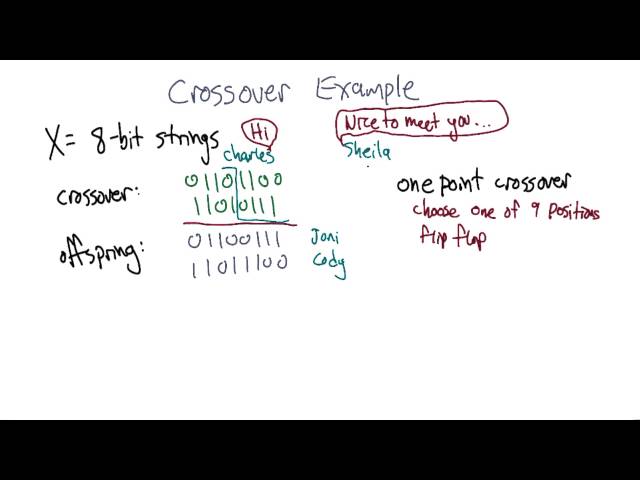 Crossover Example
X = 8-bit strings
Hi
Nice to meet you...
Charles
Sheila
crossover:
01101100
11010111
offspring:
01100111
11011100
Joni
Cody
one point crossover
choose one of 9 positions
flip flop